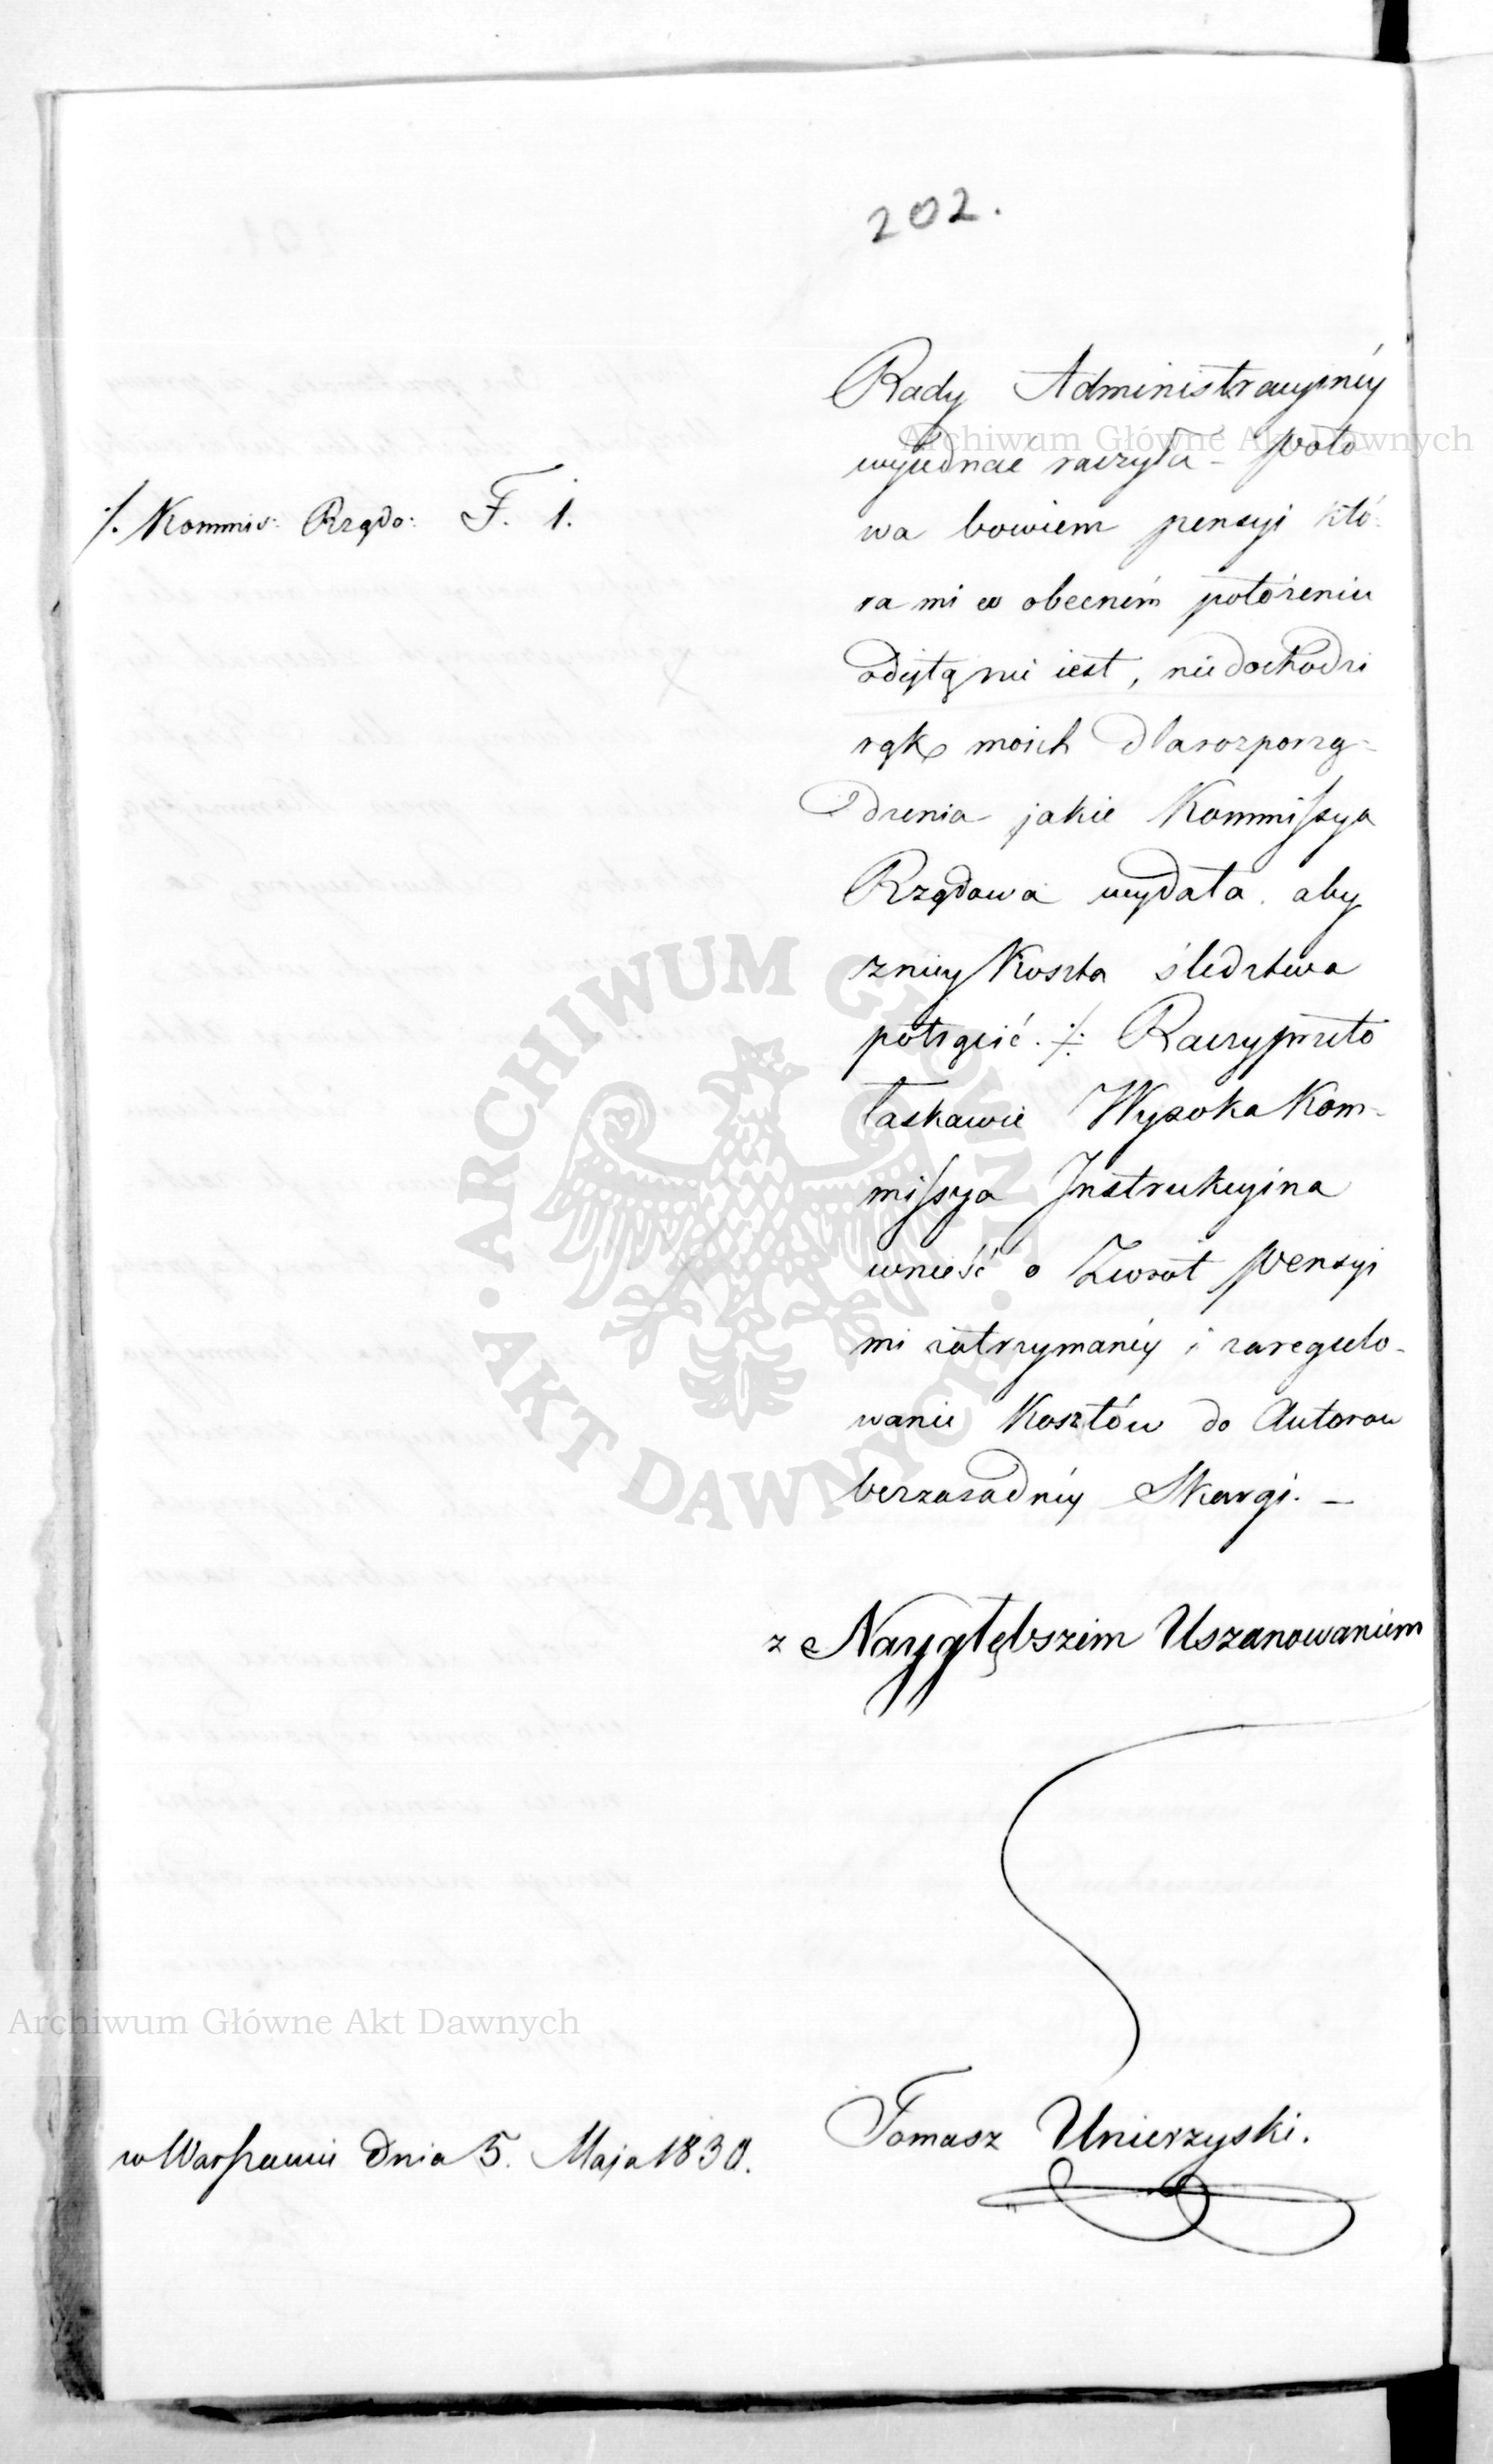 202.
Rady Administracyiney
wyiednać raczyła - Poło
wa bowiem pensyi któ-
ra mi w obecném położeniu
odiętą nie iest, niedochodzi
rąk moich dla rozporzą-
dzenia jakie Kommissya
Rządowa wydała aby
zniey Koszta śledztwa
potrącić. ·/. Raczy przeto
łaskawie Wysoka Kom-
missya Instrukcyina
wnieść o Zwrot Pensyi
mi zatrzymaney i zaregulo-
wanie Kosztów do Autorow
bezzasadney Skargi. -
·/. Kommis: Rządo: F. 1.
z Nayygłębszem Uszanowaniem
Tomasz Unierzyski.
w Warszawie dnia 5. Maja 1830.
Archiwum Główne Akt Dawnych
ARCHIWUM GŁÓWNE · AKT DAWNYCH ·
Archiwum Główne Akt Dawnych